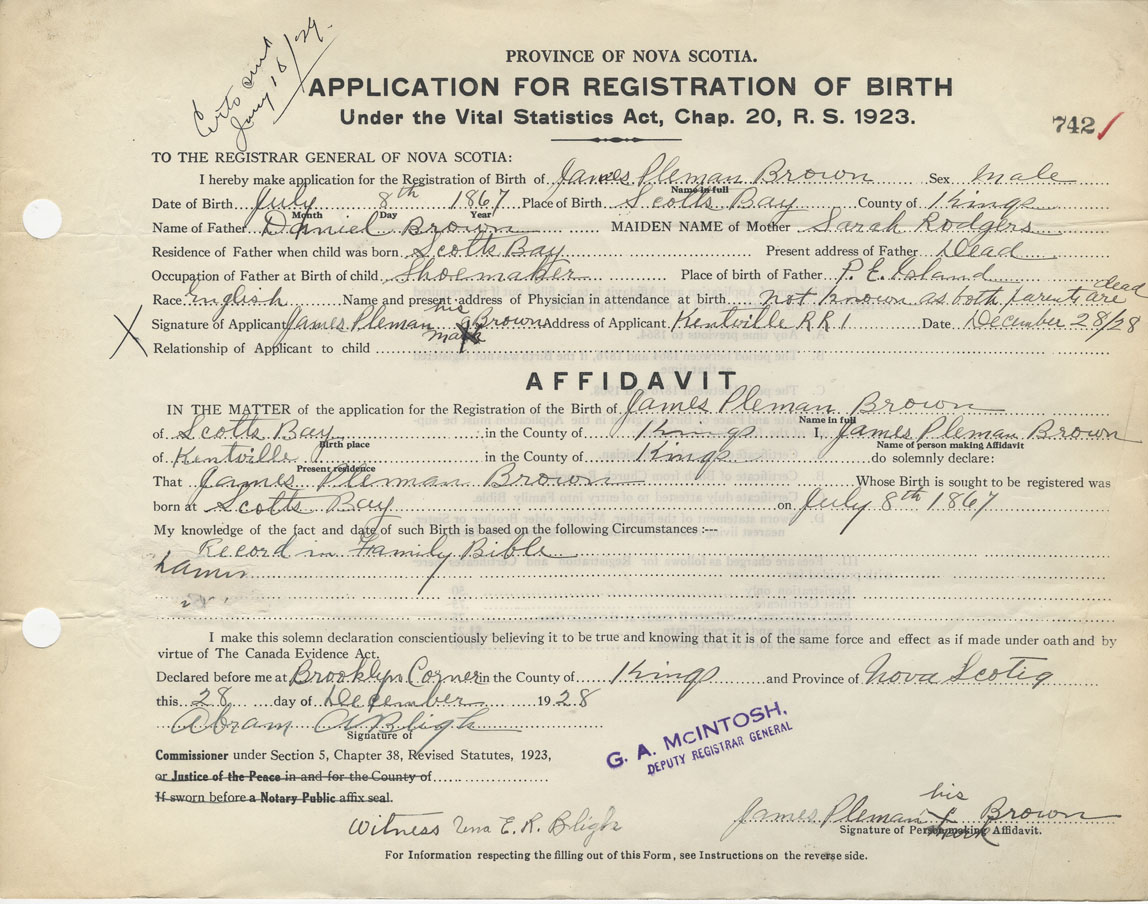 Jany 16/29.
PROVINCE OF NOVA SCOTIA.
APPLICATION FOR REGISTRATION OF BIRTH
Under the Vital Statistics Act, Chap. 20, R. S. 1923.
742
TO THE REGISTRAR GENERAL OF NOVA SCOTIA:
I hereby make application for the Registration of Birth of James Pleman Brown Sex Male
Name in full
Date of Birth July 8th 1867 Place of Birth Scotts Bay County of Kings
Month Day Year
Name of Father Daniel Brown MAIDEN NAME of Mother Sarah Rodgers
Residence of Father when child was born Scotts Bay Present address of Father Dead
Occupation of Father at Birth of child Shoemaker Place of birth of Father P. E. Island
Race English Name and present address of Physician in attendance at birth not known as both parents are dead
Signature of Applicant James Pleman his X mark Brown Address of Applicant Kentville R R 1 Date December 28/28
X
Relationship of Applicant to child
AFFIDAVIT
IN THE MATTER of the application for the Registration of the Birth of James Pleman Brown
Name in full
of Scotts Bay in the County of Kings I, James Pleman Brown
Birth place Name of person making Affidavit
of Kentville in the County of Kings do solemnly declare:
Present residence
That James Pleman Brown Whose Birth is sought to be registered was
born at Scotts Bay on July 8th 1867
My knowledge of the fact and date of such Birth is based on the following Circumstances :---
Record in Family Bible
I make this solemn declaration conscientiously believing it to be true and knowing that it is of the same force and effect as if made under oath and by
virtue of The Canada Evidence Act.
Declared before me at Brooklyn Corner in the County of Kings and Province of Nova Scotia
this 28 day of December 1928
Abram A Bligh
Signature of
G. A. McINTOSH,
DEPUTY REGISTRAR GENERAL
Commissioner under Section 5, Chapter 38, Revised Statutes, 1923,
or Justice of the Peace in and for the County of
If sworn before a Notary Public affix seal.
Witness E. R. Bligh
James Pleman his X mark Brown
Signature of Person making Affidavit.
For Information respecting the filling out of this Form, see Instructions on the reverse side.